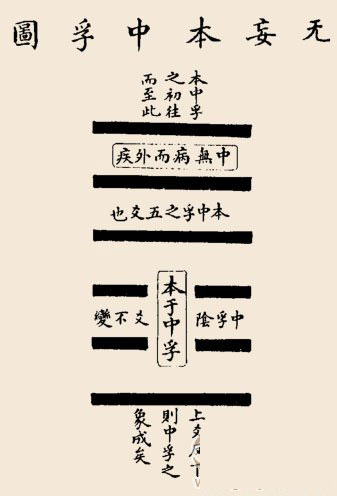 无妄本中孚圖
本中孚
之初往
而至此
中無病而外疾
本中孚之五爻也
中孚陰
本于中孚
爻不變
上爻
則中孚之
象成矣